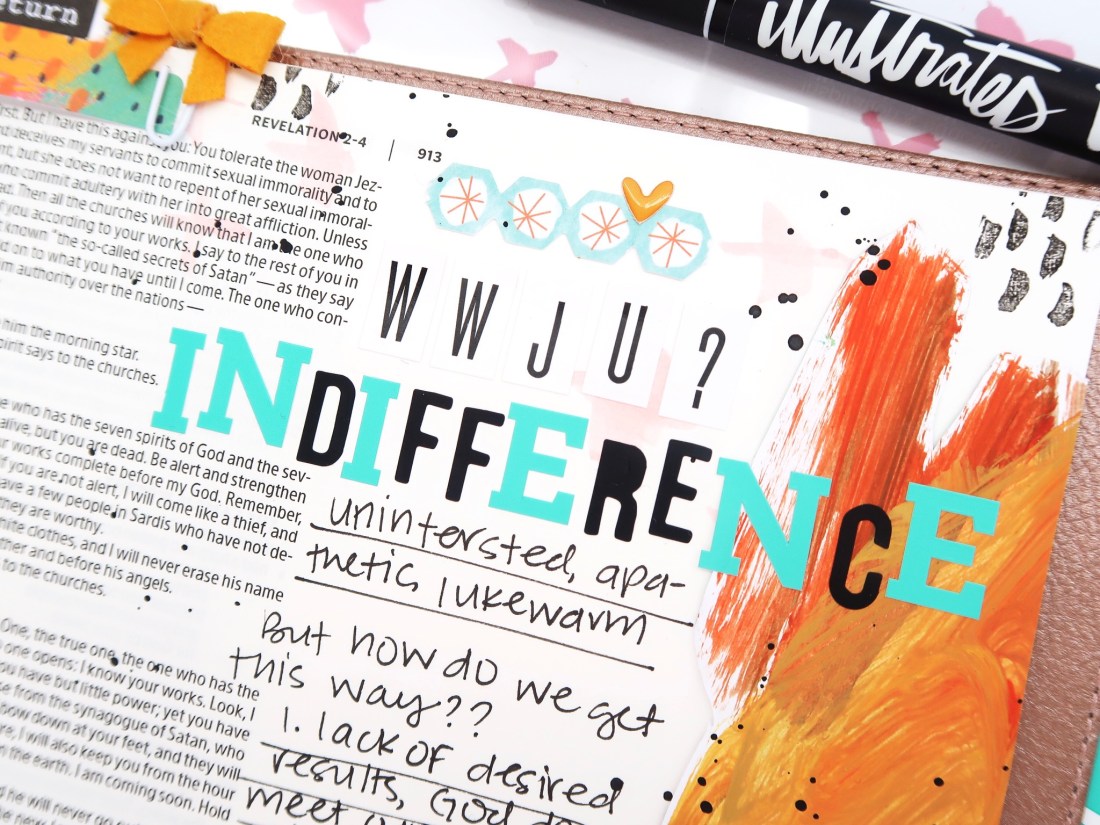 eturn
illustrates
REVELATION 2-4 | 913
first. But I have this against you: You tolerate the woman Jez-
deceives my servants to commit sexual immorality and to
but she does not want to repent of her sexual immoral-
who commit adultery with her into great affliction. Unless
Then all the churches will know that I am the one who
you according to your works. I say to the rest of you in
known "the so-called secrets of Satan" — as they say
on to what you have until I come. The one who con-
authority over the nations —
him the morning star.
says to the churches.
who has the seven spirits of God and the sev-
alive, but you are dead. Be alert and strengthen
works complete before my God. Remember,
if you are not alert, I will come like a thief, and
have a few people in Sardis who have not de-
they are worthy.
white clothes, and I will never erase his name
and before his angels.
to the churches.
One, the true one, the one who has the
one opens: I know your works. Look, I
you have but little power; yet you have
from the synagogue of Satan, who
down at your feet, and they will
I will also keep you from the hour
the earth. I am coming soon. Hold
he will never go
WWJU?
INDIFFERENCE
unintersted, apa-
thetic, lukewarm
But how do we get
this way??
1. lack of desired
results, God
meet